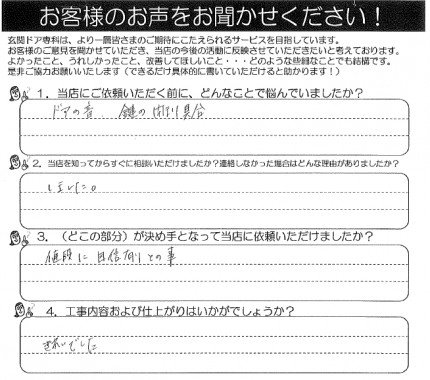 お客様のお声をお聞かせください！
玄関ドア専科は、より一層皆さまのご期待にこたえられるサービスを目指しています。
お客様のご意見を聞かせていただき、当店の今後の活動に反映させていただきたいと考えております。
よかったこと、うれしかったこと、改善してほしいこと・・・どのような些細なことでも結構です。
是非ご協力お願いいたします（できるだけ具体的に書いていただけると助かります！）
1．当店にご依頼いただく前に、どんなことで悩んでいましたか？
ドアの音、鍵の閉り具合
2．当店を知ってからすぐに相談いただけましたか？連絡しなかった場合はどんな理由がありましたか？
しました。
3．（どこの部分）が決め手となって当店に依頼いただけましたか？
値段に自信有りとの事
4．工事内容および仕上がりはいかがでしょうか？
きれいでした